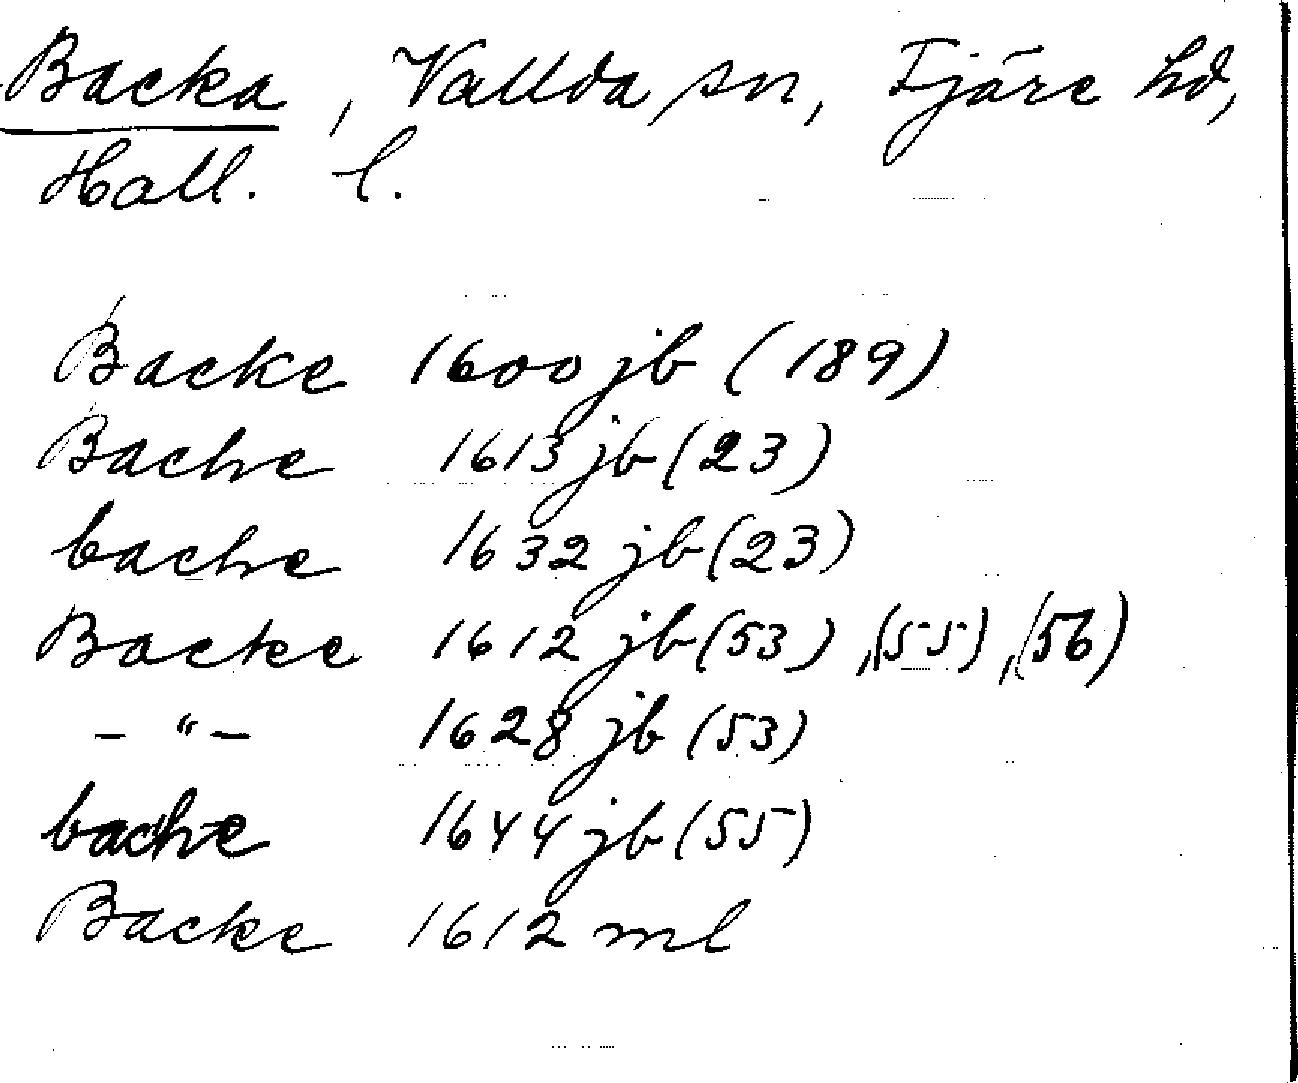 Backa, Vallda sn, Fjäre hd,
Hall. l.
Backe 1600 jb (189)
Bache 1613 jb (23)
bache 1632 jb (23)
Backe 1612 jb (53), (55), (56)
- " - 1628 jb (53)
bache 1644 jb (55)
Backe 1612 ml